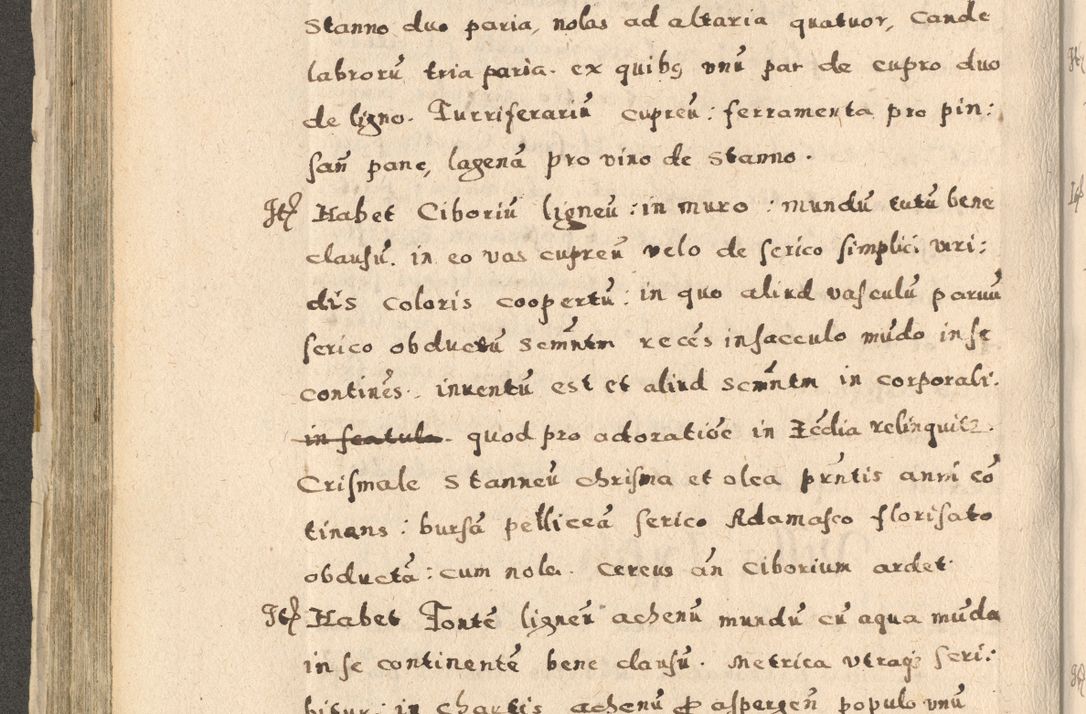 Stanno duo paria, nolas ad altaria quatuor, Cande
labrorū tria paria. ex quibꝫ unū par de cupro duo
de ligno. Turriferariū cupreū: ferramenta pro pin:
sañ pane, lagenā pro vino de Stanno.
Itꝫ Habet Ciboriū ligneū: in muro: mundū tutū bene
clausū. in eo vas cupreū velo de serico simplici viri:
dis coloris coopertū: in quo aliud vasculū paruū
serico obductū Scm̄ntm recēs in sacculo mūdo in se
continēs. inventū est et aliud scm̄ntm in corporali.
in scatula. quod pro adoratiōe in relinquitꝫ.
Crismale Stanneū chrisma et olea pr̄ntis anni cō
tinans: bursā pelliceā serico Adamasco florisato
obductā: cum nola. Cereus an̄ Ciborium ardet.
Itꝫ Habet Fontē ligneū achenū mundū cū aqua mūda
in se continentē bene clausū. Metrica utraqꝫ scri:
bitur: in chartis achenū ꝓ aspergeñ populo unū